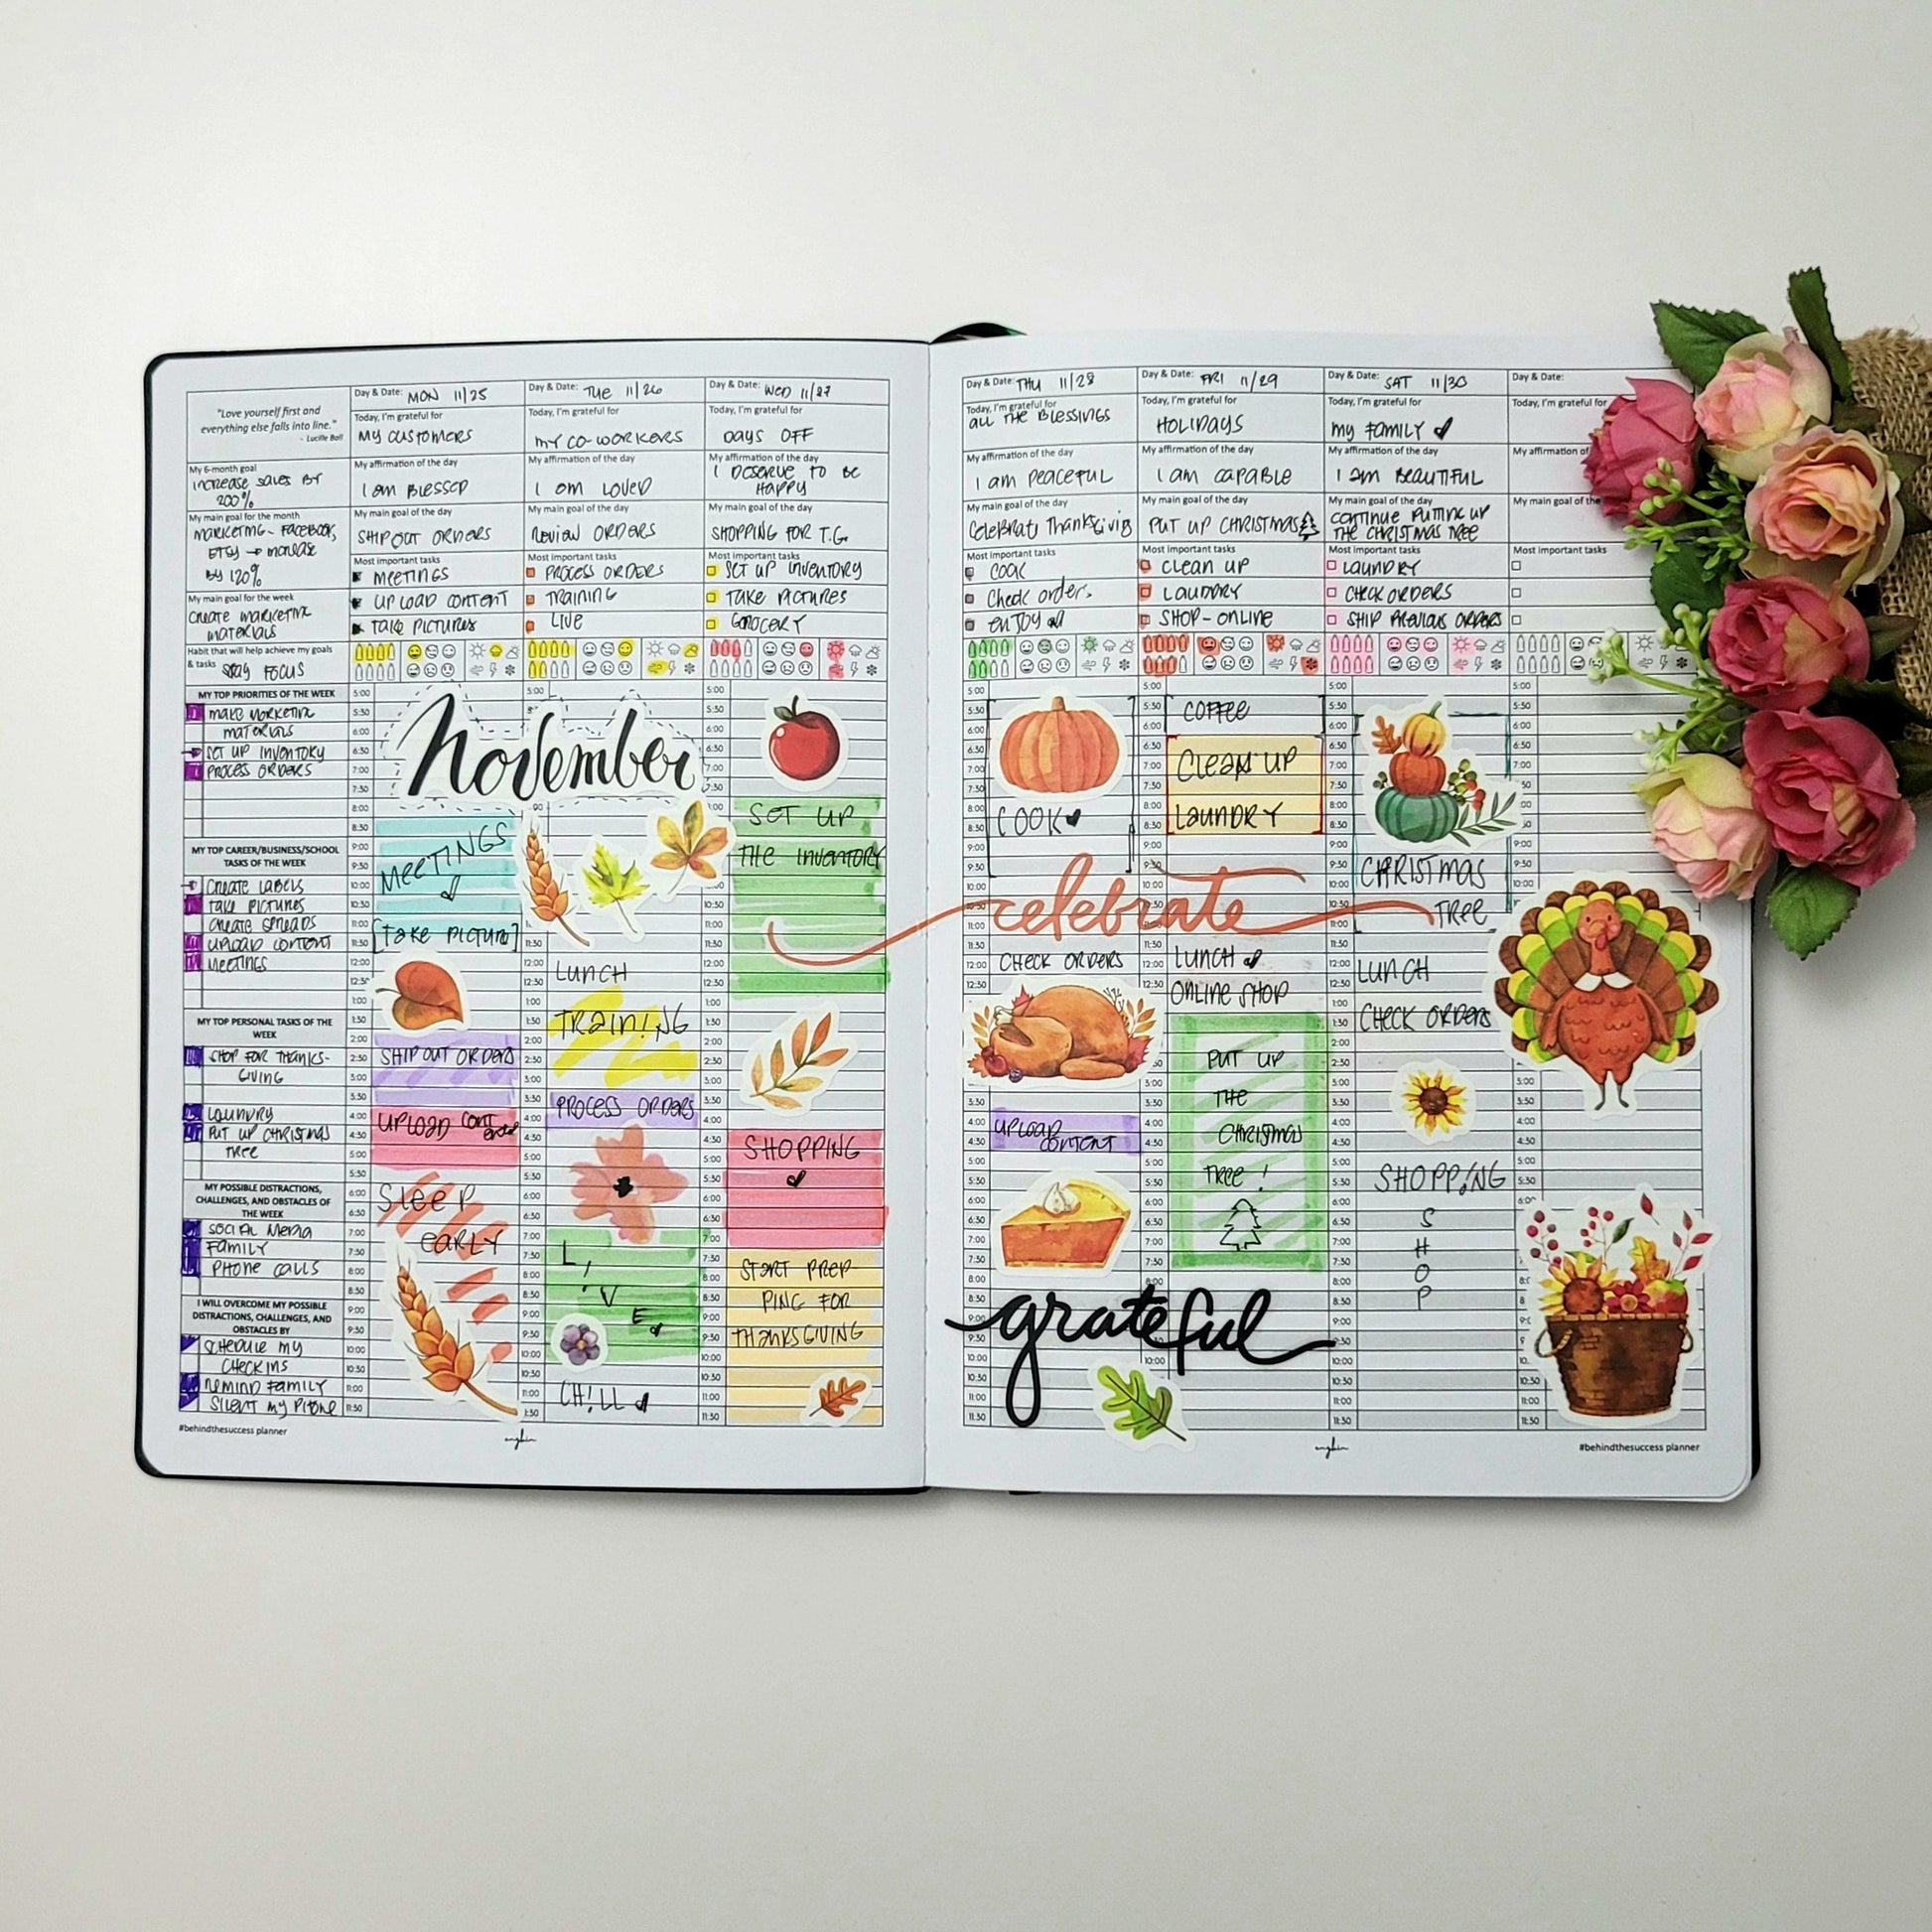 "Love yourself first and
everything else falls into line."
- Lucille Ball
My 6-month goal
INCREASE SALES BY
200%
My main goal for the month
MARKETING - FACEBOOK,
ETSY → INCREASE
BY 120%
My main goal for the week
CREATE MARKETING
MATERIALS
Habit that will help achieve my goals
& tasks STAY FOCUS
MY TOP PRIORITIES OF THE WEEK
MAKE MARKETING
MATERIALS
SET UP INVENTORY
PROCESS ORDERS
MY TOP CAREER/BUSINESS/SCHOOL
TASKS OF THE WEEK
CREATE LABELS
TAKE PICTURES
CREATE SPREADS
UPLOAD CONTENT
MEETINGS
MY TOP PERSONAL TASKS OF THE
WEEK
SHOP FOR THANKS-
GIVING
LAUNDRY
PUT UP CHRISTMAS
TREE
MY POSSIBLE DISTRACTIONS,
CHALLENGES, AND OBSTACLES OF
THE WEEK
SOCIAL MEDIA
FAMILY
PHONE CALLS
I WILL OVERCOME MY POSSIBLE
DISTRACTIONS, CHALLENGES, AND
OBSTACLES BY
SCHEDULE MY
CHECK INS
REMIND FAMILY
SILENT MY PHONE
#behindthesuccess planner
Day & Date: MON 11/25
Today, I'm grateful for
MY CUSTOMERS
My affirmation of the day
I AM BLESSED
My main goal of the day
SHIP OUT ORDERS
Most important tasks
MEETINGS
UPLOAD CONTENT
TAKE PICTURES
November
MEETINGS
[TAKE PICTURE]
SHIP OUT ORDERS
UPLOAD CONT
SLEEP
EARLY
Day & Date: TUE 11/26
Today, I'm grateful for
MY CO-WORKERS
My affirmation of the day
I AM LOVED
My main goal of the day
REVIEW ORDERS
Most important tasks
PROCESS ORDERS
TRAINING
LIVE
LUNCH
TRAIN!NG
PROCESS ORDERS
L
I
V
E
CH!LL
Day & Date: WED 11/27
Today, I'm grateful for
DAYS OFF
My affirmation of the day
I DESERVE TO BE
HAPPY
My main goal of the day
SHOPPING FOR T.G.
Most important tasks
SET UP INVENTORY
TAKE PICTURES
GROCERY
SET UP
THE INVENTORY
SHOPPING
START PREP-
PING FOR
THANKSGIVING
Day & Date: THU 11/28
Today, I'm grateful for
ALL THE BLESSINGS
My affirmation of the day
I AM PEACEFUL
My main goal of the day
Celebrate Thanksgiving
Most important tasks
COOK
Check orders
ENJOY
COOK
celebrate
CHECK ORDERS
UPLOAD
CONTENT
grateful
Day & Date: FRI 11/29
Today, I'm grateful for
HOLIDAYS
My affirmation of the day
I AM CAPABLE
My main goal of the day
PUT UP CHRISTMAS
Most important tasks
CLEAN UP
LAUNDRY
SHOP-ONLINE
COFFEE
CLEAN UP
LAUNDRY
LUNCH
ONLINE SHOP
PUT UP
THE
CHRISTMAS
TREE!
Day & Date: SAT 11/30
Today, I'm grateful for
MY FAMILY
My affirmation of the day
I AM BEAUTIFUL
My main goal of the day
CONTINUE PUTTING UP
THE CHRISTMAS TREE
Most important tasks
LAUNDRY
CHECK ORDERS
SHIP PREVIOUS ORDERS
CHRISTMAS
TREE
LUNCH
CHECK ORDERS
SHOPP!NG
S
H
O
P
Day & Date:
Today, I'm grateful for
My affirmation of
My main goal of the
Most important tasks
#behindthesuccess planner